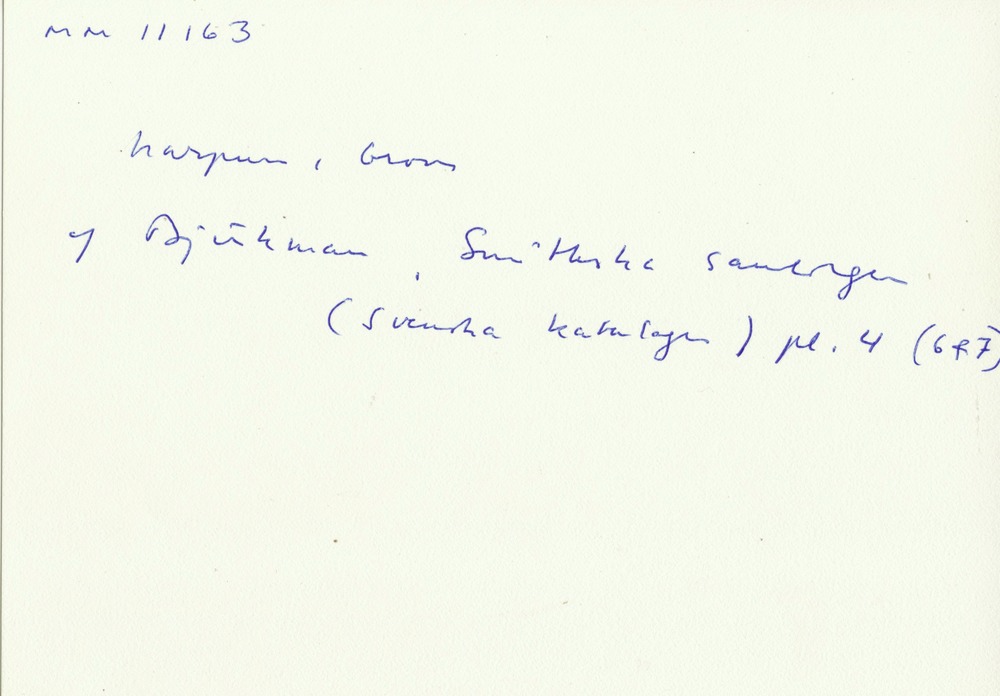 MM 11163
harpun, brons
cf Björkman, Smithska samlingen
(Svenska katalogen) pl. 4 (6&7)